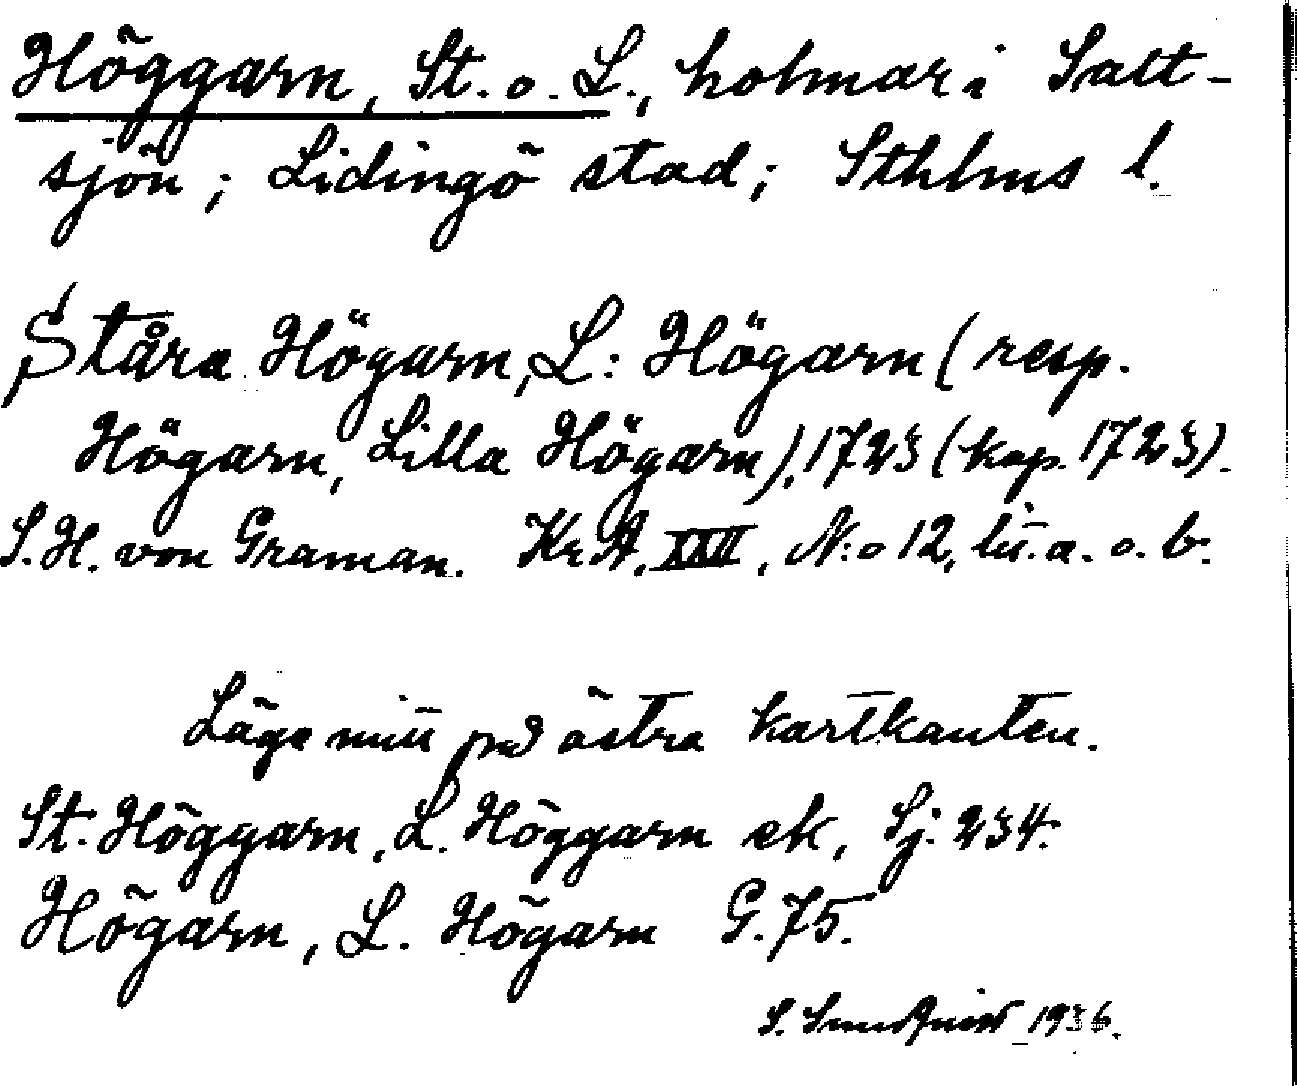 Höggarn, St. o. L., holmar i Salt-
sjön; Lidingö stad; Sthlms l.
Ståra Högarn, L: Högarn (resp.
Högarn, Lilla Högarn), 1723 (kop. 1723).
S. H. von Graman. Kr. A. XXII, N:o 12, litt. a. o. b.
Läge mitt på östra kartkanten.
St. Höggarn, L. Höggarn ek, Sj. 234.
Högarn, L. Högarn G. 75.
S. Sundquist 1936.